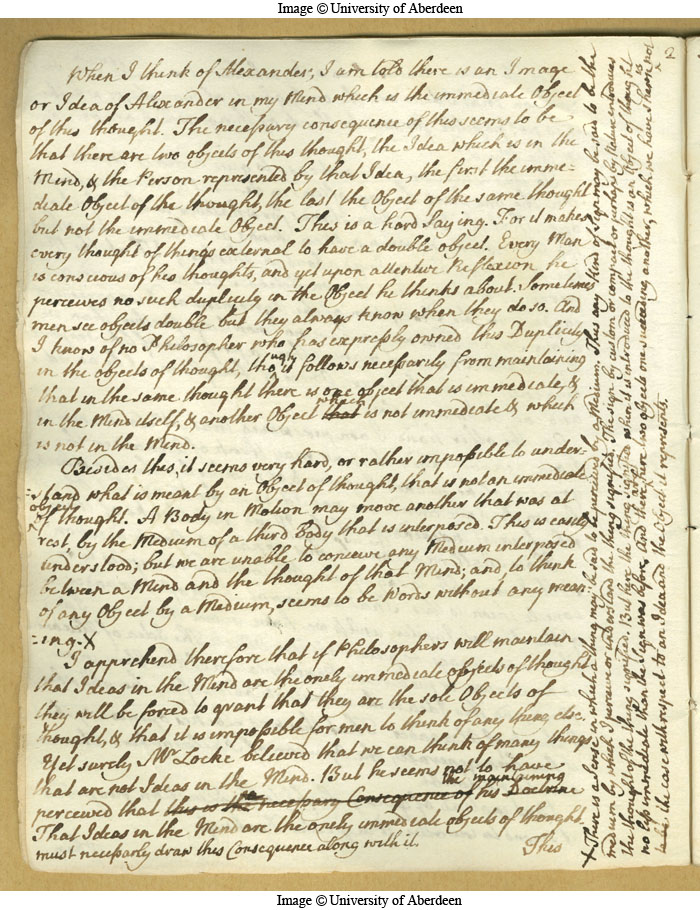 Image © University of Aberdeen
2
When I think of Alexander, I am told there is an Image
or Idea of Alexander in my Mind which is the immediate Object
of this thought. The necessary consequence of this seems to be
that there are two objects of this thought, the Idea which is in the
Mind, & the Person represented by that Idea, the first the imme-
diate Object of the thought, the last the Object of the same thought
but not the immediate Object. This is a hard Saying. For it makes
every thought of things external to have a double object. Every Man
is conscious of his thoughts, and yet upon attentive Reflexion he
perceives no such duplicity in the Object he thinks about. Sometimes
men see objects double but they always know when they do so. And
I know of no Philosopher who has expressly owned this Duplicity
in the objects of thought, though it follows necessarly from maintaining
that in the same thought there is one object that is immediate, &
in the Mind itself, & another Object that which is not immediate & which
is not in the Mind.
Besides this, it seems very hard, or rather impossible to under-
=stand what is meant by an Object of thought, that is not an immediate
object of thought. A Body in Motion may move another that was at
rest, by the Medium of a third body that is interposed. This is easily
understood; but we are unable to conceive any Medium interposed
between a Mind and the thought of that Mind; and, to think
of any Object by a Medium, seems to be Words without any mean-
=ing. X
I apprehend therefore that if Philosophers will maintain
that Ideas in the Mind are the onely immediate objects of thought
they will be forced to grant that they are the sole Objects of
thought, & that it is impossible for men to think of any thing else.
Yet surely Mr Locke believed that we can think of many things
that are not Ideas in the Mind. But he seems not to have
perceived that this is the a necessary Consequence of the maintaining his Doctrine
That Ideas in the Mind are the onely immediate objects of thought.
must necessarly draw this Consequence along with it.
This
X There is a Sense in which a thing may be said to be perceived by a Medium. Thus any kind of Sign may be said to be the
medium by which I perceive or understand the thing signified. The sign by custom or compact or perhaps by Nature introduces
the thought of the thing signified. But here the thing signified when it is introduced to the thought is an Object of thought
no less immediate than the Sign was before. And there are two objects one succeeding another, which we have shewn is not
the case with respect to an Idea and the Object it represents.
Image © University of Aberdeen